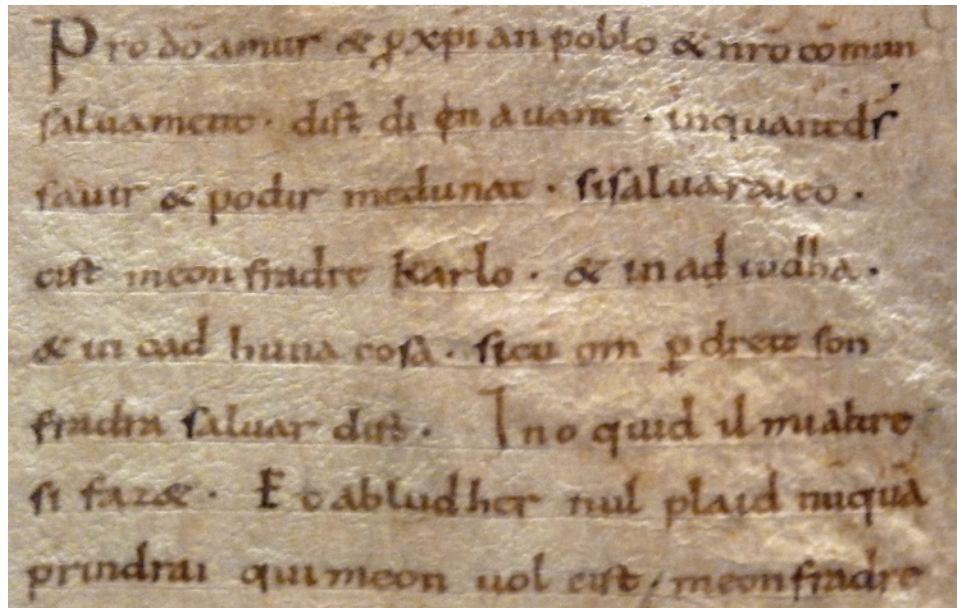 Pro dō amur & p̱ xpi an poblo & nrō cōmun
saluament · dist di en auant · inquantdṡ
sauir & podir medunat · sisaluaraieo ·
cist meon fradre Karlo · & in ad iudha ·
& in cad huna cosa · sicu om p̱ dreit son
fradra saluar dift · Ino quid il mi altre
si faz& · Et abludher nul plaid nūquā
prindrai qui meon uol cist, meonfradre